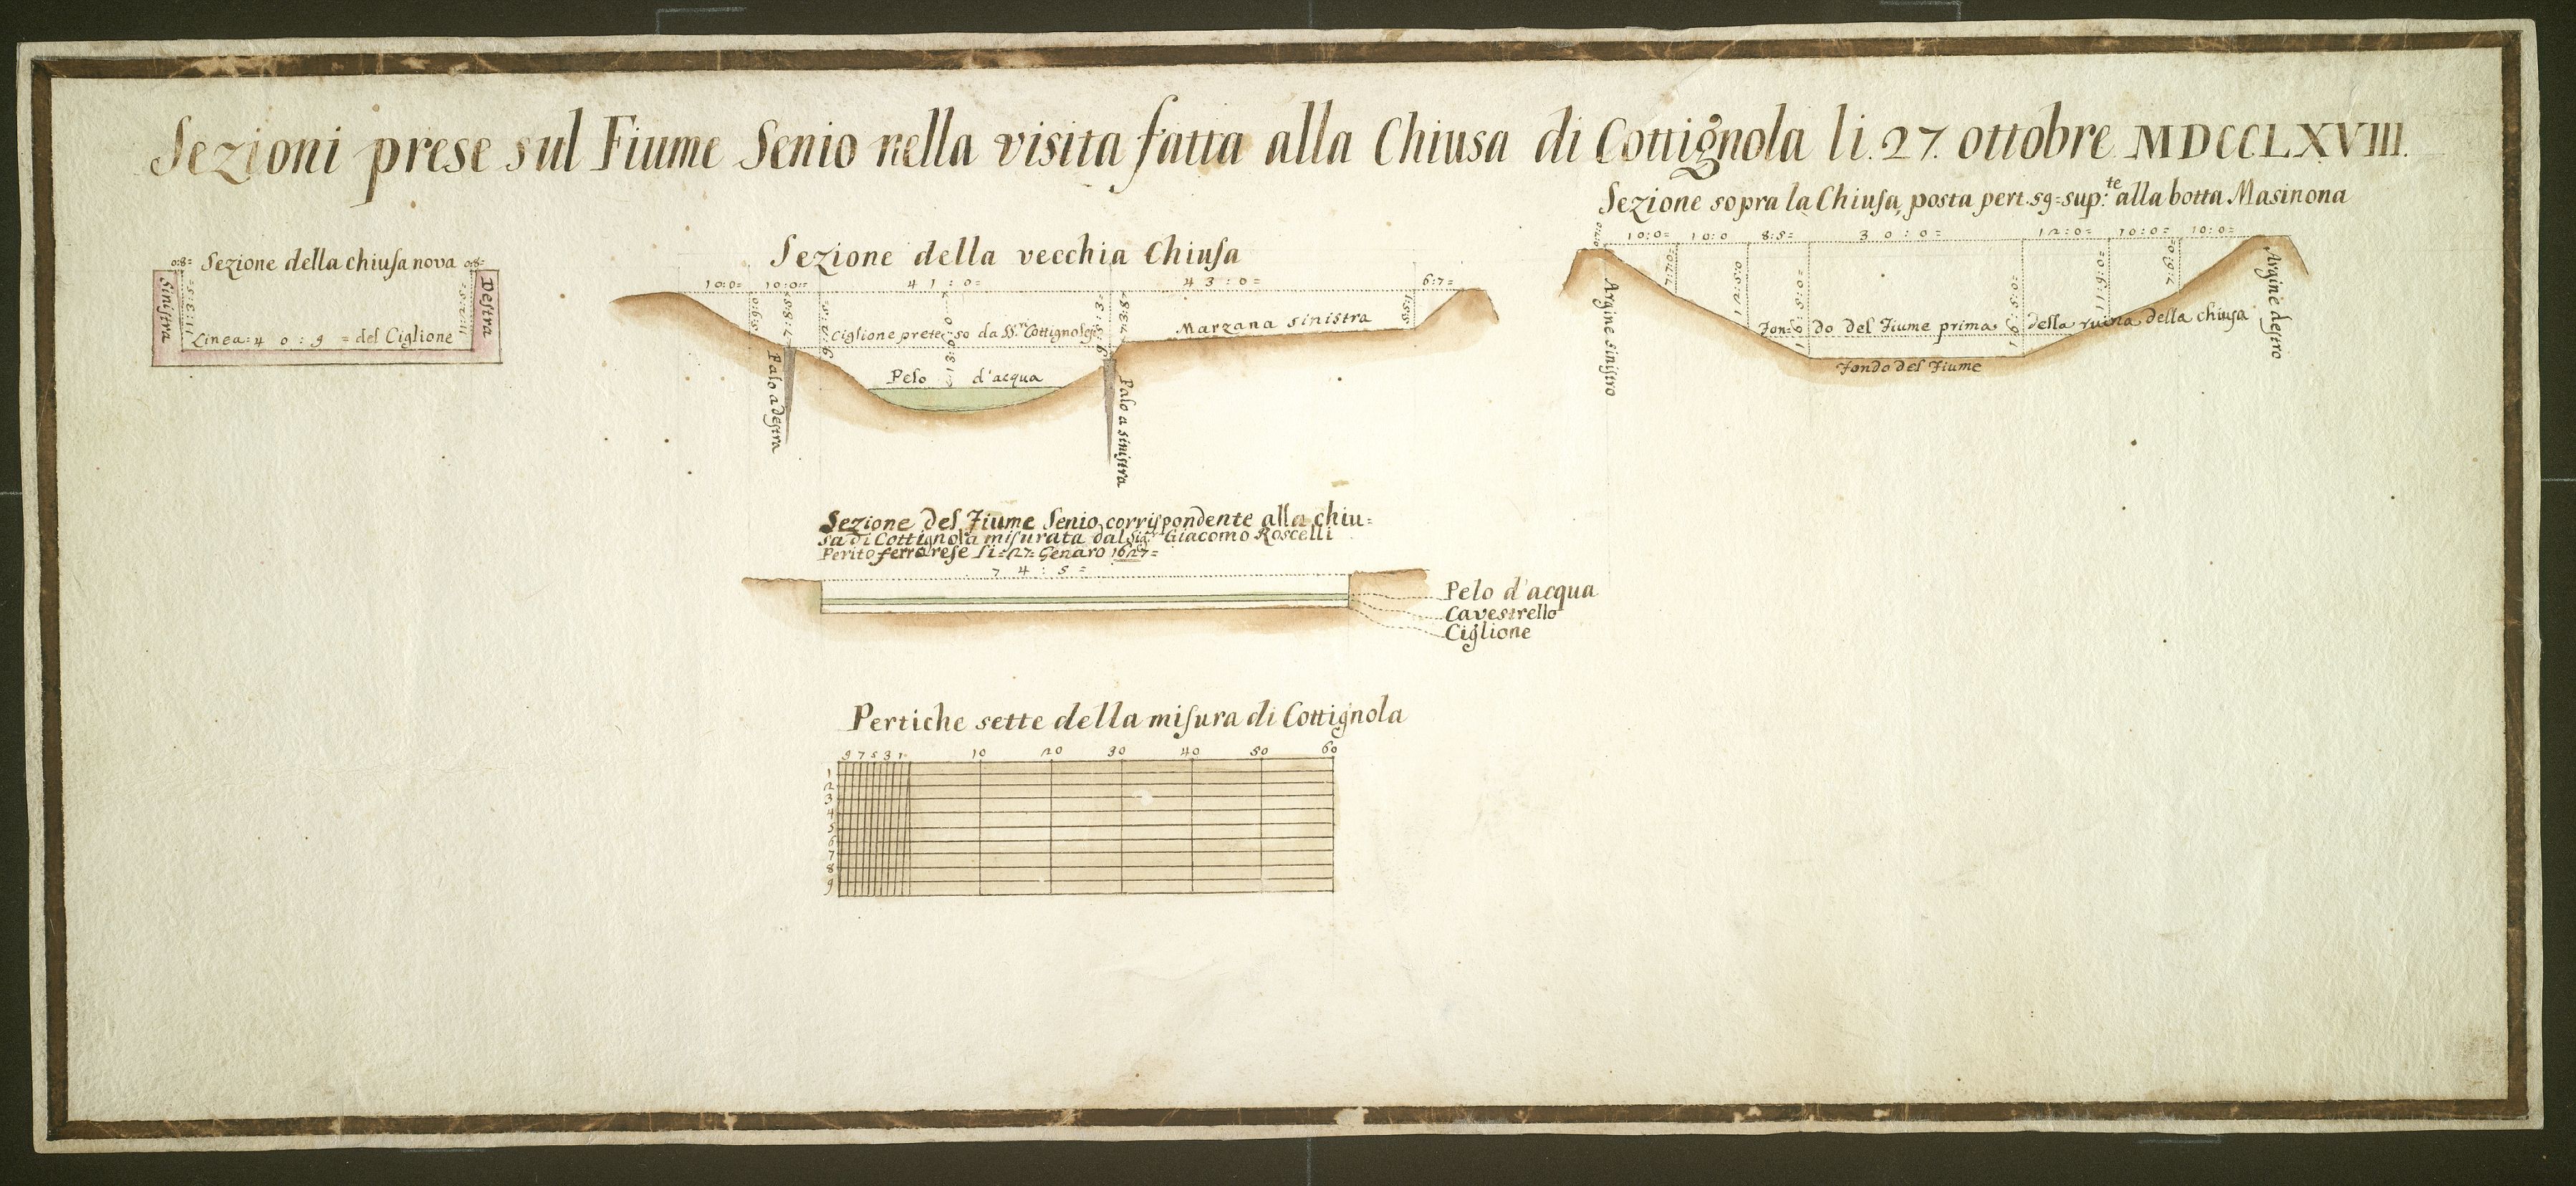 Sezioni prese sul Fiume Senio nella visita fatta alla Chiusa di Cottignola li. 27. ottobre MDCCLXVIII.
Sezione della chiusa nova
0:8=
0:8=
Sinistra
Destra
Linea: 40:9 = del Ciglione
Sezione della vecchia Chiusa
10:0= 10:0= 41:0= 43:0= 6:7=
Ciglione preteso da SS.ri Cottignolesi
Marzana sinistra
Pelo d'acqua
Palo a destra
Palo a sinistra
Sezione sopra la Chiusa, posta pert. 59= sup.te alla botta Masinona
10:0= 10:0 8:5= 30:0= 12:0= 10:0= 10:0=
Argine sinistro
Argine destro
Fondo del Fiume prima della ruina della chiusa
Fondo del Fiume
Sezione del Fiume Senio corrispondente alla chiu=
sa di Cottignola misurata dal Sig.r Giacomo Roscelli
Perito ferrarese li= 27= Genaro 1627=
74:5=
Pelo d'acqua
Cavestrello
Ciglione
Pertiche sette della misura di Cottignola
9 7 5 3 1 10 20 30 40 50 60
1
2
3
4
5
6
7
8
9